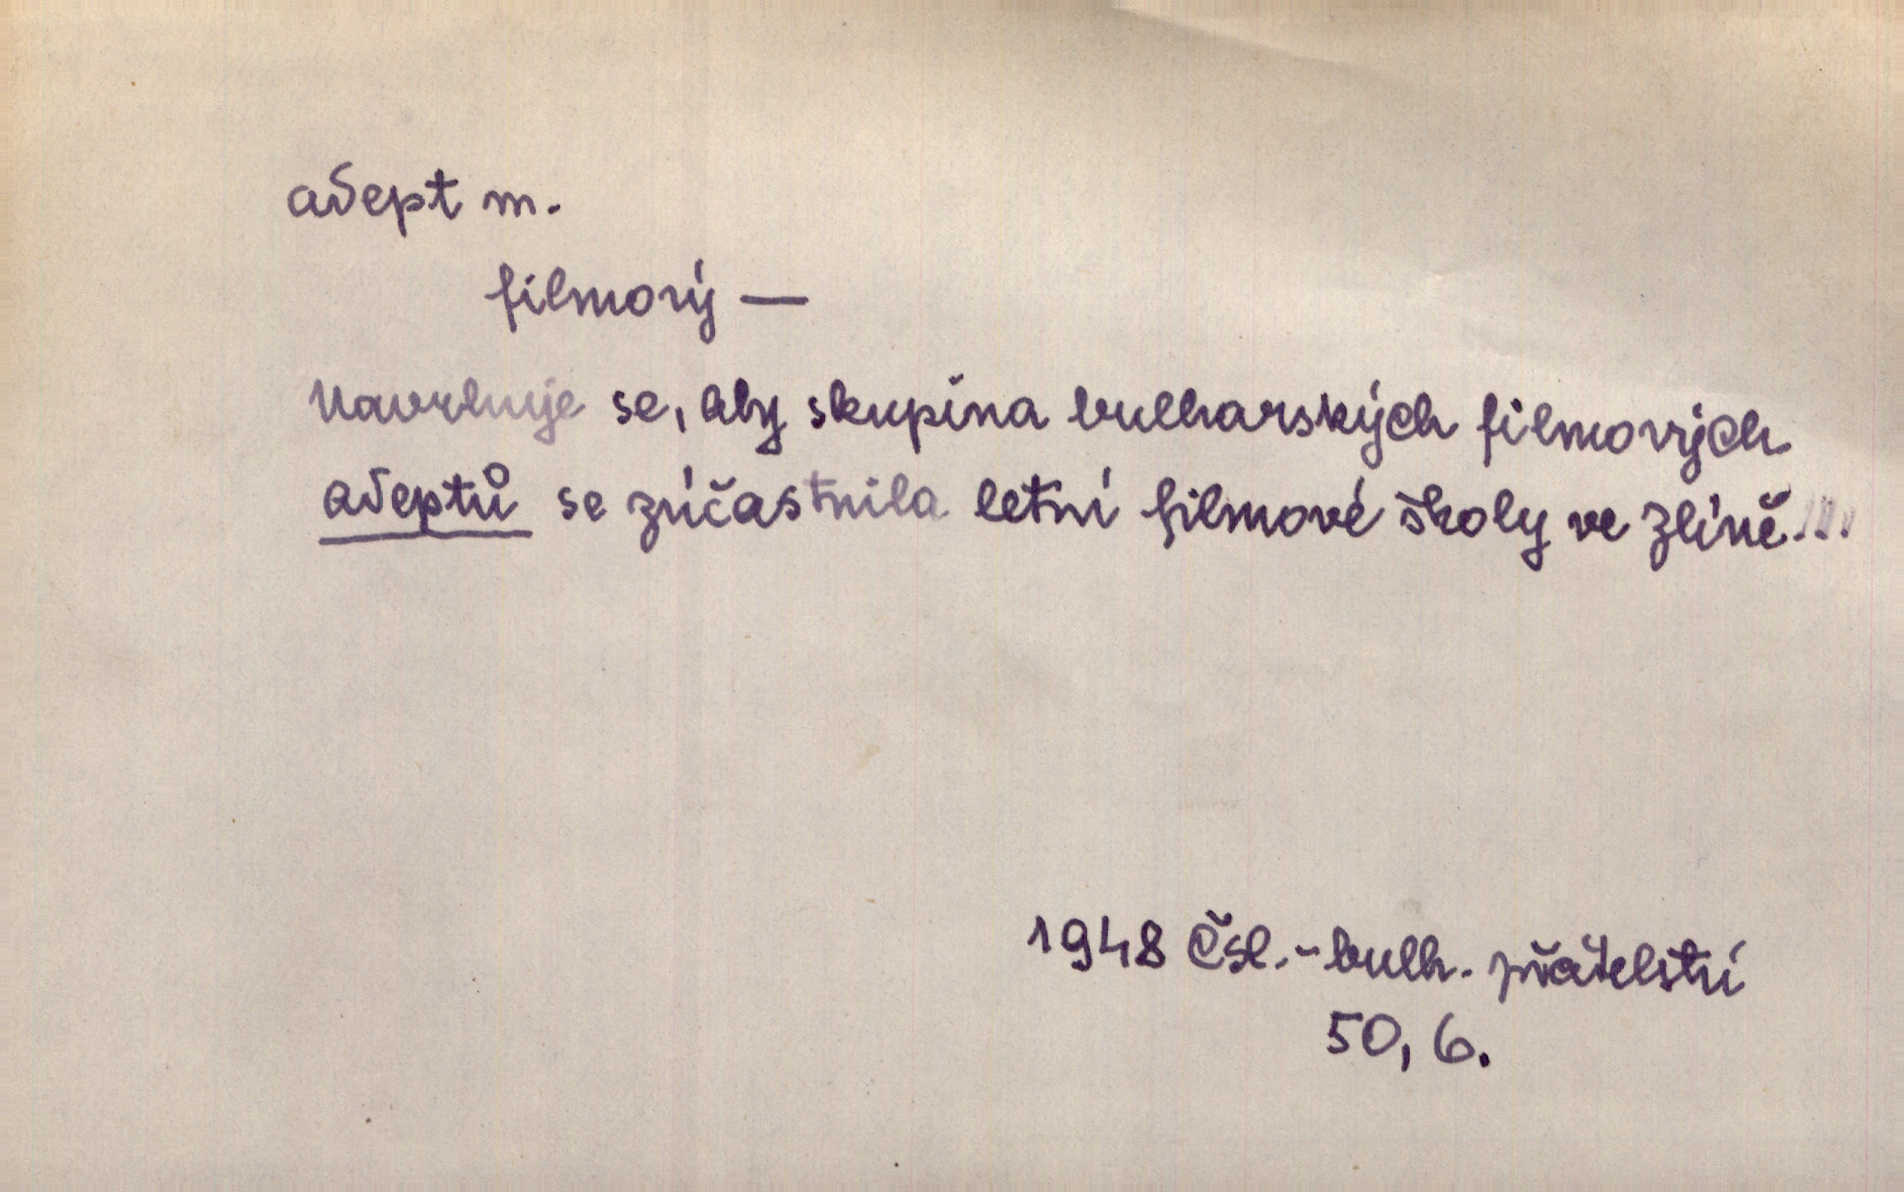 adept m.
filmový —
Navrhuje se, aby skupina bulharských filmových
adeptů se zúčastnila letní filmové školy ve Zlíně...
1948 Čsl.-bulh. přátelství
50, 6.